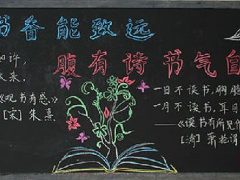 书香能致远
腹有诗书气自
如许，
来。
《观书有感》
[宋]朱熹
一日不读书，胸臆
一月不读书，耳目
——《读书有所见作
[清]萧抡谓